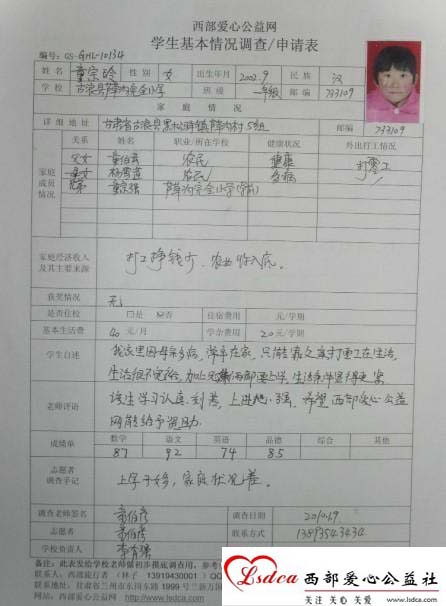 西部爱心公益网
学生基本情况调查/申请表
编号: GS-GHL-10134
姓名 童宗玲 性别 女 出生年月 2002.9 民族 汉
学校 古浪县 完全小学 班级 一年级 邮编 733109
家庭情况
详细地址 甘肃省古浪县黑松驿镇 村5组 邮编 733109
家庭成员情况 关系 姓名 职业/所在学校 健康状况 外出打工情况
父女 童伯 农民 健康 打零工
母女 杨 农民 多病
童宗强 完全小学(学前)
家庭经济收入及其主要来源 打工挣钱少、农业收入底。
获奖情况 无
是否住校 口是 口否 住宿费用 元/学期
基本生活费 40 元/月 学杂费用 20元/学期
学生自述 我家里因母亲多病,常年在家,只能靠父亲打零工在生活,
生活很不
老师评语 该生学习认真,刻苦,上进心强,希望西部爱心公益
网能给予资助。
成绩单 数学 语文 英语 品德 综合 其他
87 92 74 85
志愿者调查手记 家庭状况差。
调查老师签名 童伯 调查日期 2010.1.9
志愿者 童伯 联系方式 13893543434
学校负责人
备注:此表发给学校老师做初步摸底调查用,参考
联系人:西部旅行者 (林子 13919430001) QQ
联系地址:甘肃省兰州市东岗东路1999号兰新万国
网站: http://www.lsdca.com
Lsdca.com
西部爱心公益社
关注 关心 关爱
http://www.lsdca.com